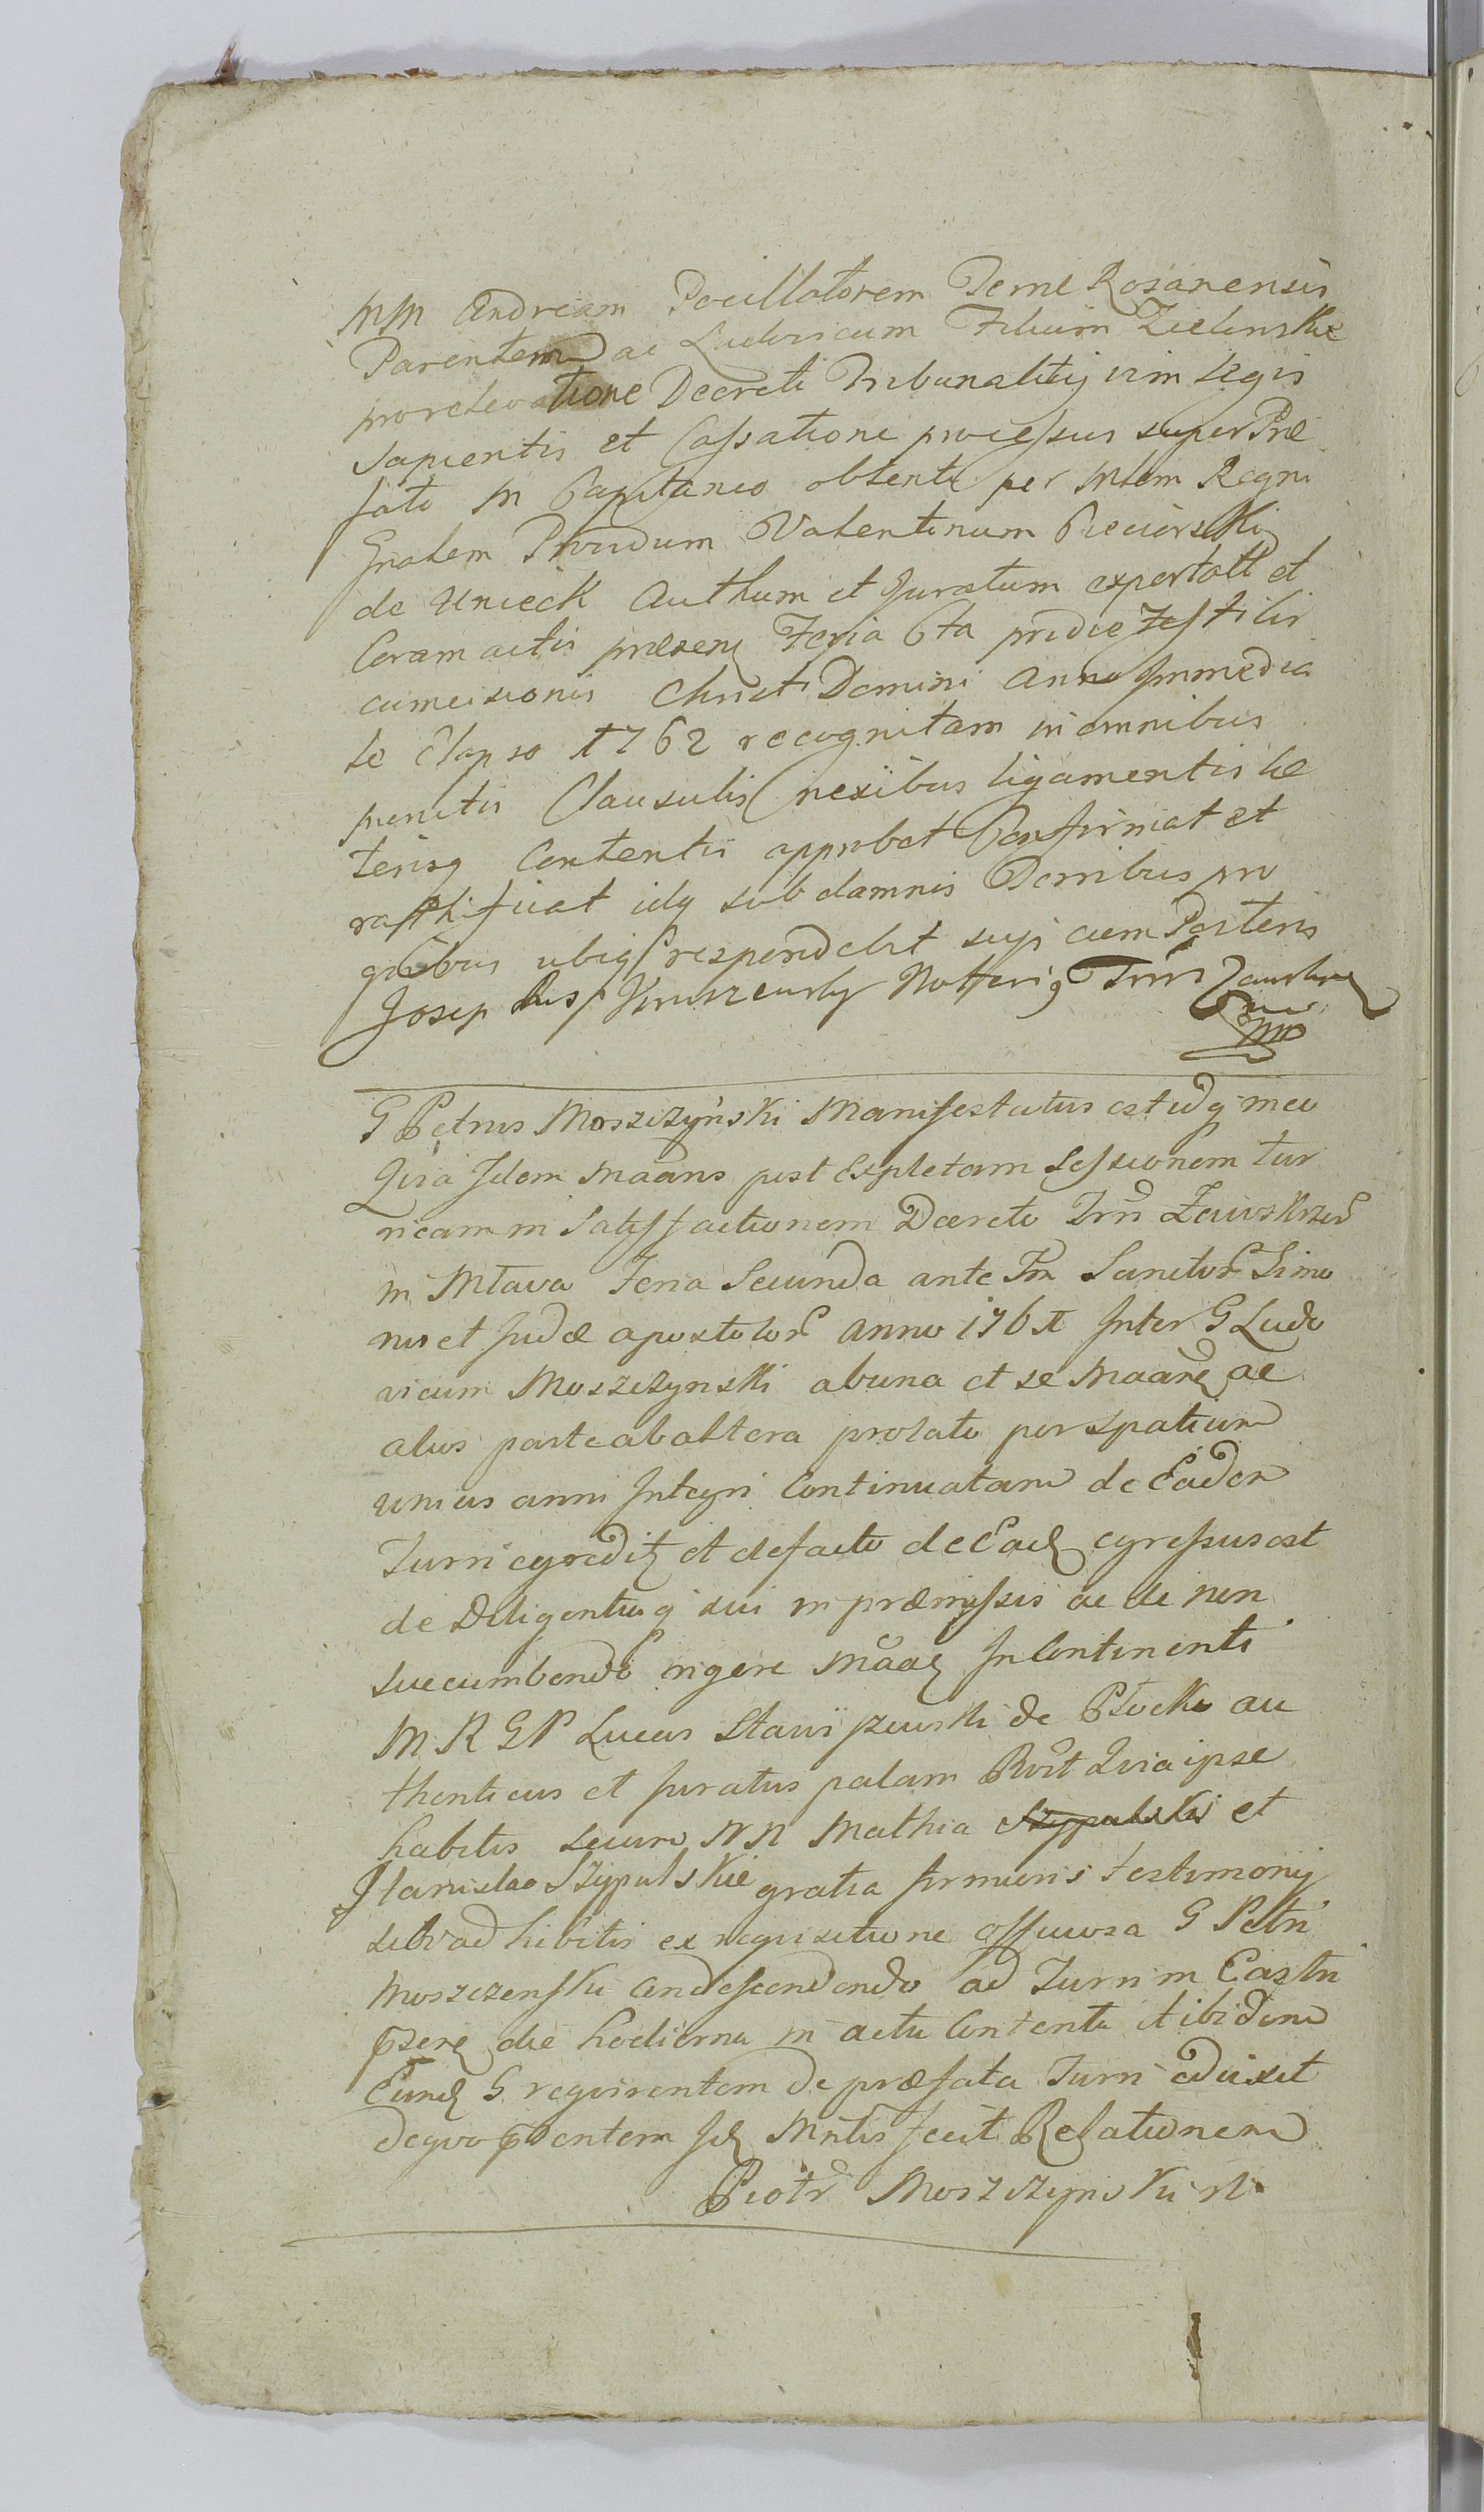 MM Andream Pocillatorem Terrae Rosanensis
Parentem ac Ludovicum Filium Zielinskie
pro relevatione Decreti Tribunalitij vim legis
sapientis et Cassatione processus super Prae
fato M Capitaneo obtenti per Mlem Regni
Gnalem Providum Valentinum
de Unieck Authum et Juratum exportatt et
Coram actis praesenę Feria 6ta pridie Festi Cir
cumcisionis Christi Domini Anno Immedia
te Elapso 1762 recognitam in omnibus
punctis Clausulis nexibus ligamentis cae
terisq Contentis approbat Confirmat et
ratthificat idq sub damnis Terribus pro
qibus ubiq respondebit suji cum Posteris
Josephus Notferiq
G Petrus Moszczyński Manifestatus est idq in eo
Qvia Idem Maans post Expletam Sessionem tur
ricam in Satisfactionem Decreti Trri Zawskrzen
in Mlava Feria Secunda ante Fm Sanctor Simo
nis et Judae apostolor Anno Inter G Ludo
vicum Moszczynski ab una et se Maanę ac
alios parte ab altera prolati per spatium
unius anni Integri Continuatam de Eadem
Turri egredit et de facto de Eadę egressus est
de Diligentiaq sui in praemissis ac de non
succumbendo rigore Maaę In Continenti
M R G P Lucas de Plocko au
thenticus et Juratus palam Rvit Qvia ipse
habitis secum NN Mathia Szypulski et
Stanislao Szypulskie gratia firmioris testimonij
sibi adhibitis ex reqvisitione officiosa G Petri
Moszczenski condescendendo ad Turrim Castri
pserę die hodierna in actu Contenti et ibidem
Eundę G reqvirentem de praefata Turri eduxit
de qvo psentem Idę Mntis fecit Relationem
Piotr Moszczynski